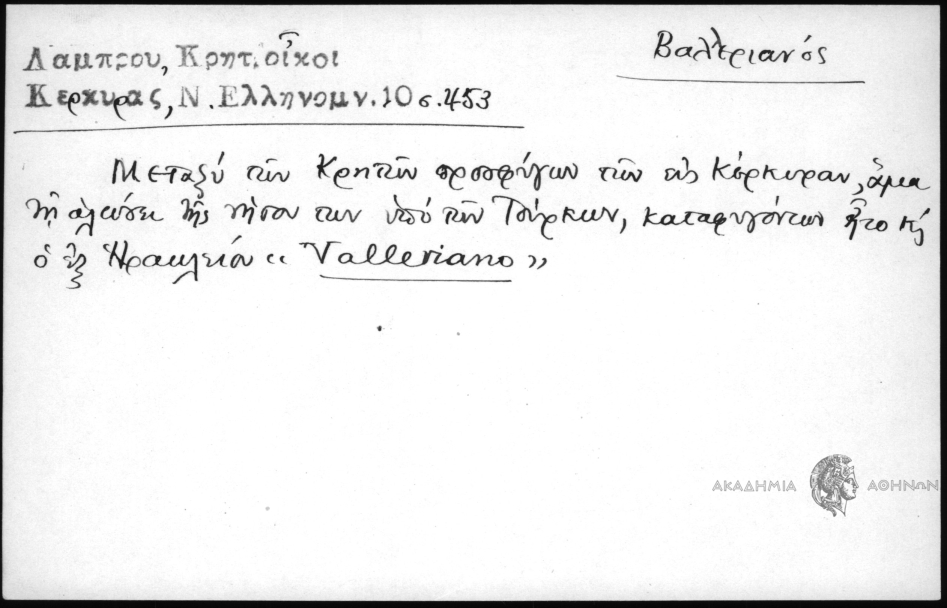 Βαλεριανός
Λαμπρου, Κρητ. οἶκοι
Κερκυρας, Ν. Ελληνομν. 10 σ. 453
Μεταξύ τῶν Κρητῶν προσφύγων τῶν εἰς Κέρκυραν, ἅμα
τῇ ἁλώσει τῆς νήσου των ὑπό τῶν Τούρκων, καταφυγόντων ἦτο κ
ὁ ἐξ Ἡρακλείου « Valleriano »
ΑΚΑΔΗΜΙΑ ΑΘΗΝΩΝ